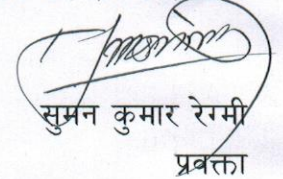 सुमन कुमार रेग्मी
प्रवक्ता